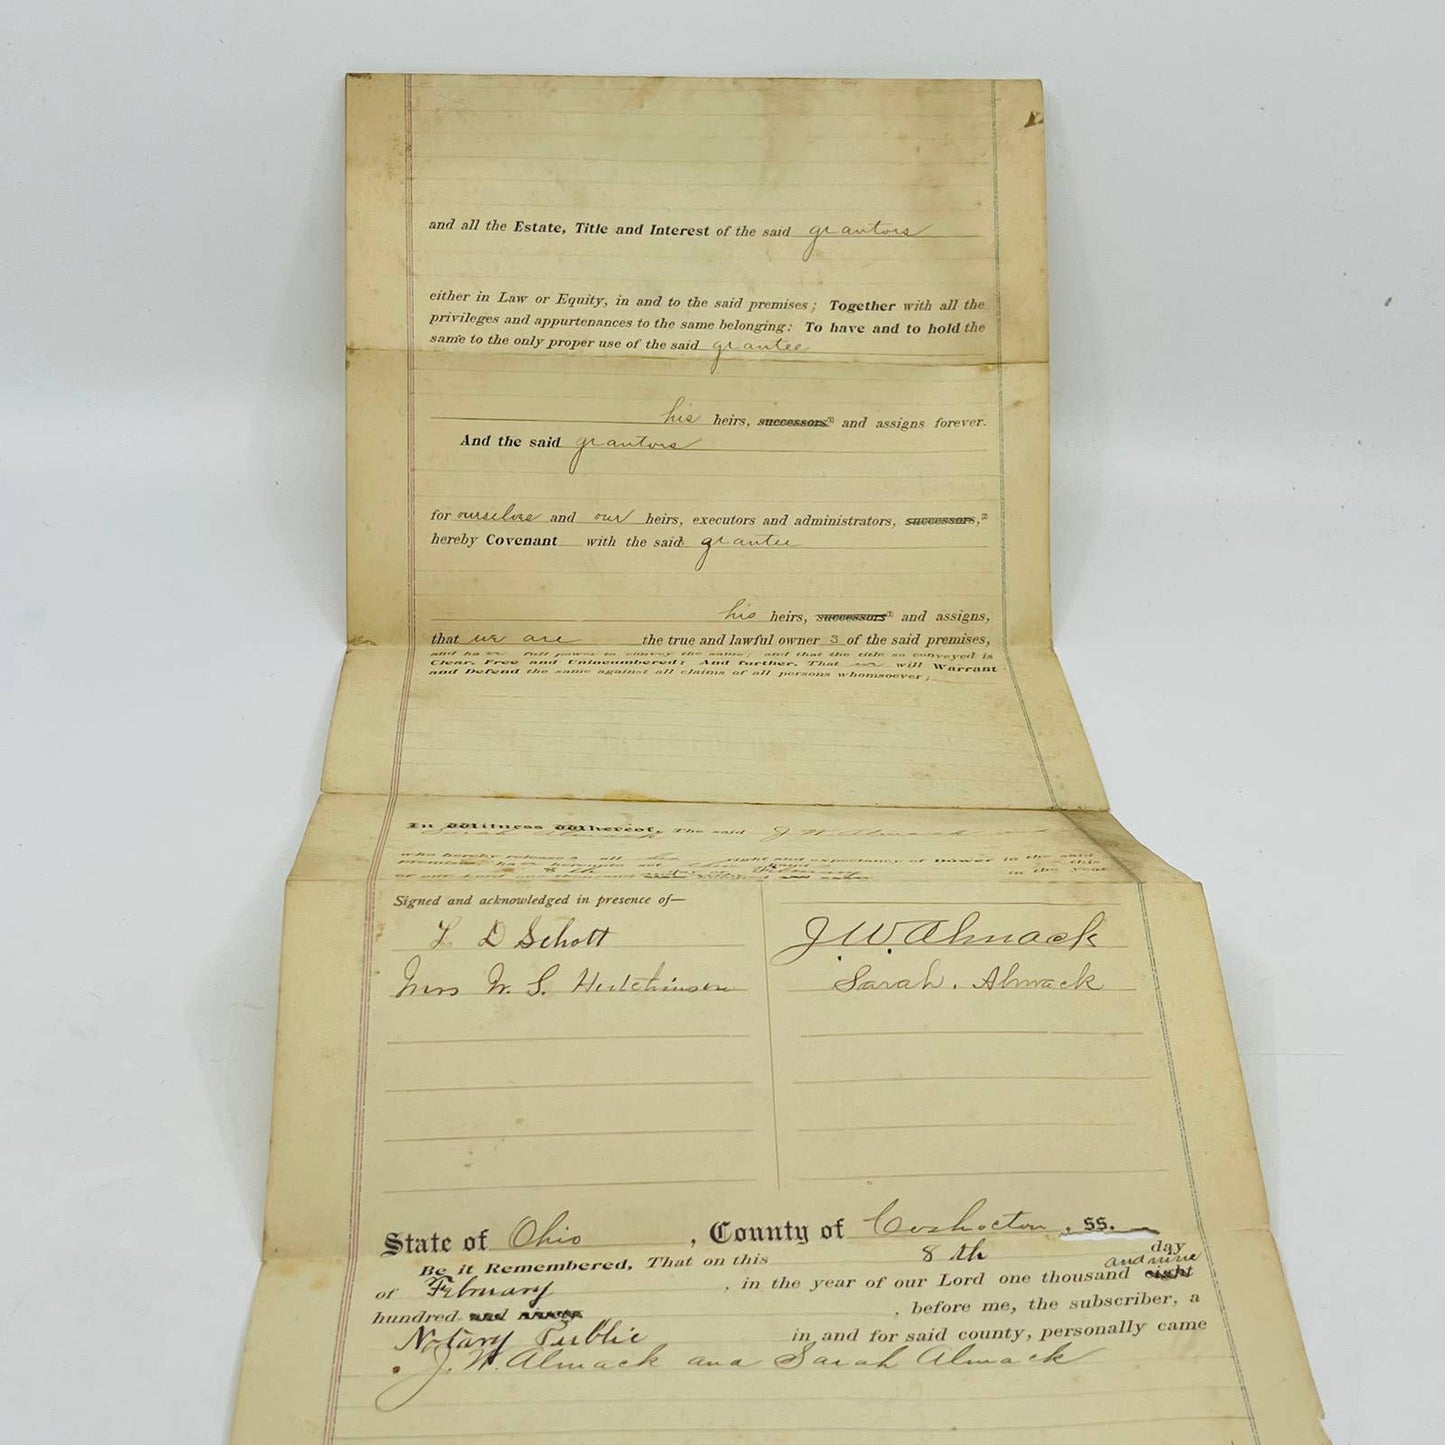 and all the Estate, Title and Interest of the said grantors
either in Law or Equity, in and to the said premises; Together with all the
privileges and appurtenances to the same belonging: To have and to hold the
same to the only proper use of the said grantee
his heirs, successors(1) and assigns forever.
And the said grantors
for ourselves and our heirs, executors and administrators, successors,2
hereby Covenant with the said grantee
his heirs, successors(1) and assigns,
that we are the true and lawful owner s of the said premises,
and have full power to convey the same; and that the title so conveyed is
Clear, Free and Unincumbered; And further, That we will Warrant
and Defend the same against all claims of all persons whomsoever;
In Witness Whereof, The said J W Almack and
Sarah Almack
who hereby releases all her right and expectancy of Dower in the said
premises, have hereunto set their hands this
8th day of February in the year
of our Lord one thousand
Signed and acknowledged in presence of—
L D Schott
J. W. Almack
Mrs W. S. Hutchinson
Sarah. Almack
State of Ohio, County of Coshocton, SS.
Be it Remembered, That on this 8th day
of February, in the year of our Lord one thousand eight and nine
hundred and ninety, before me, the subscriber, a
Notary Public in and for said county, personally came
J. W. Almack and Sarah Almack